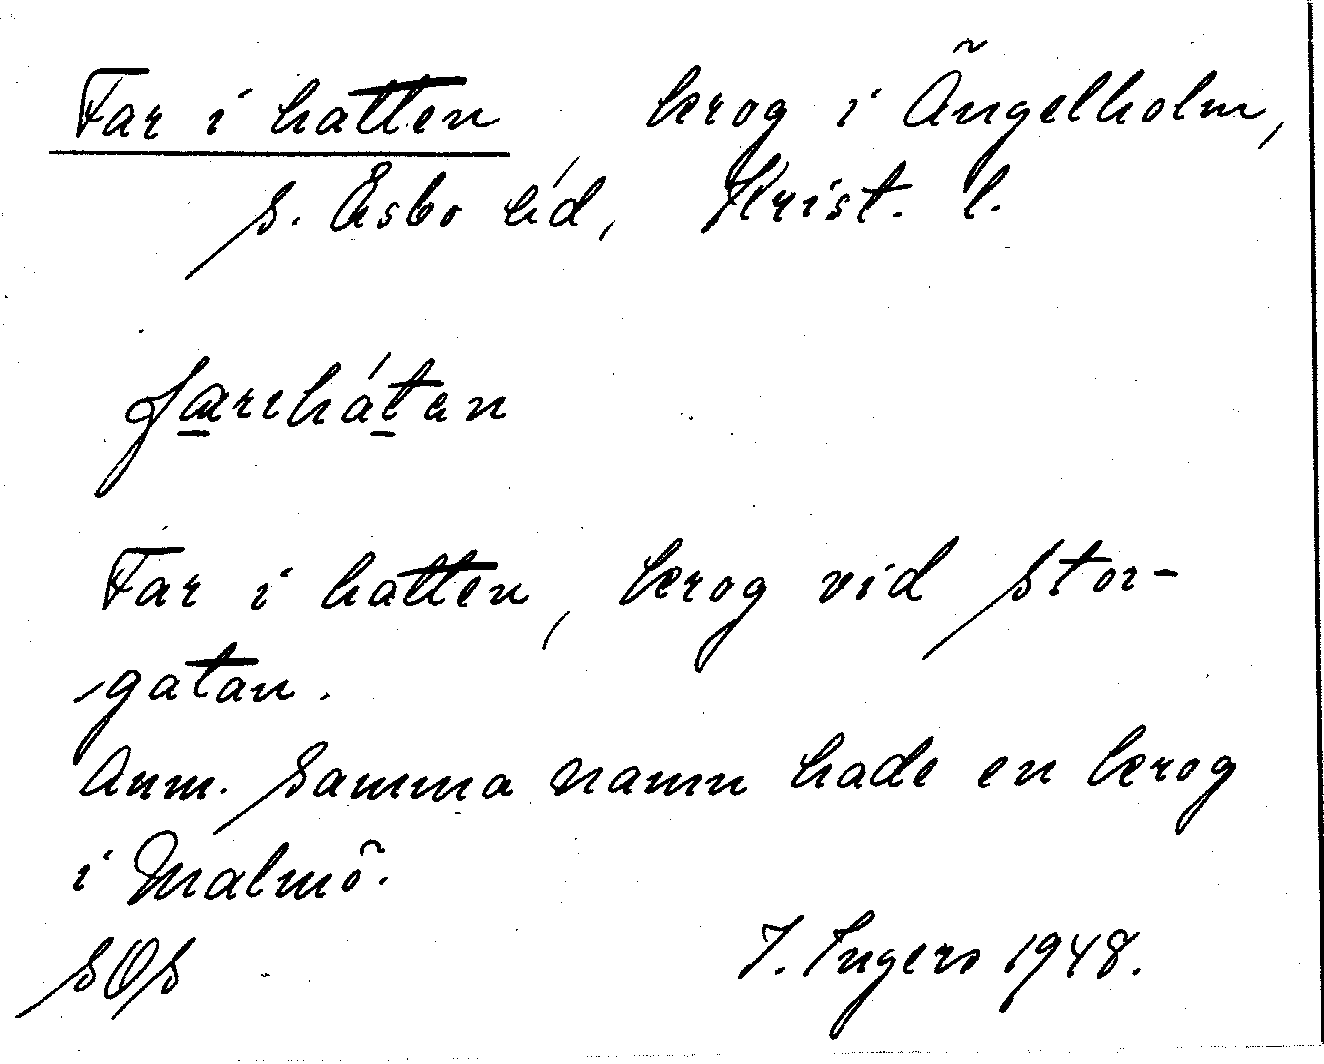 Far i hatten krog i Ängelholm,
S. Åsbo hd, Krist. l.
farihátan
Far i hatten, krog vid Stor-
gatan.
Anm. Samma namn hade en krog
i Malmö.
SOS I. Ingers 1948.